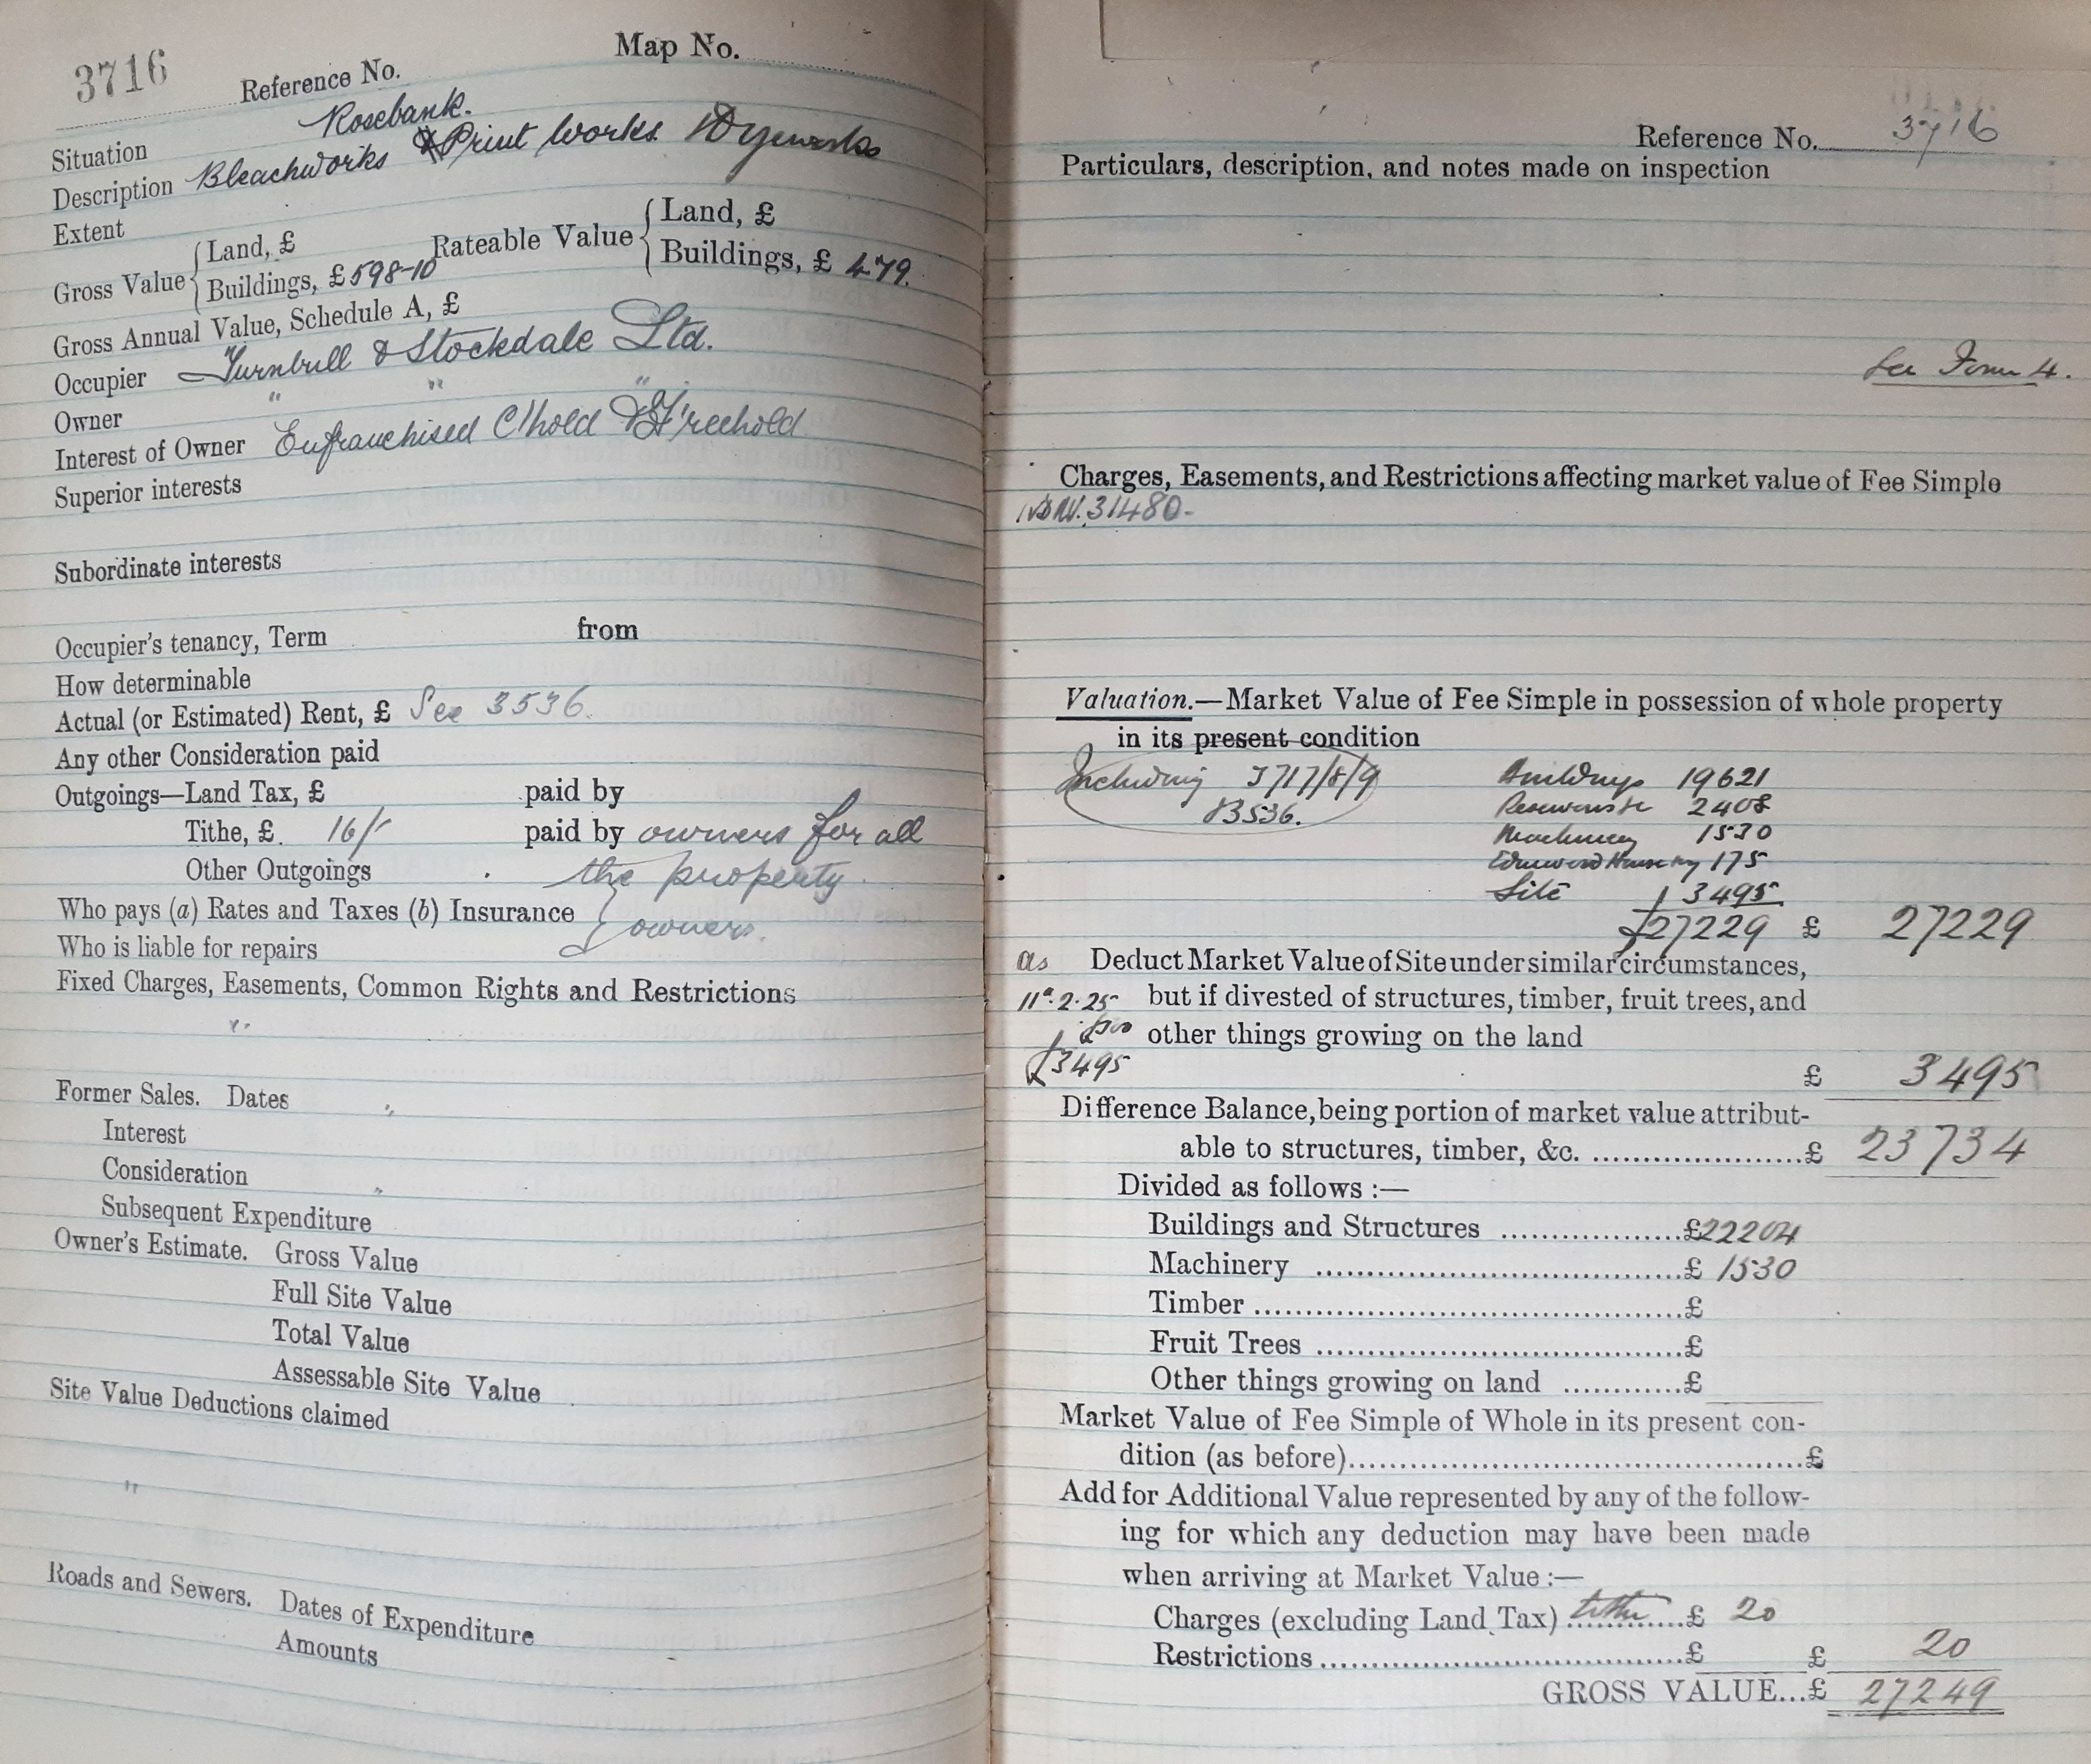 3716 Reference No. Map No.
Situation Rosebank.
Description Bleachworks & Print Works. & Dyeworks
Extent
Gross Value { Land, £ Rateable Value { Land, £
Buildings, £ 598-10 Buildings, £ 479.
Gross Annual Value, Schedule A, £
Occupier Turnbull & Stockdale Ltd.
Owner " " "
Interest of Owner Enfranchised C'hold & Freehold
Superior interests
Subordinate interests
Occupier's tenancy, Term from
How determinable
Actual (or Estimated) Rent, £ See 3536.
Any other Consideration paid
Outgoings—Land Tax, £ paid by
Tithe, £. 16/- paid by owners for all
Other Outgoings the property
Who pays (a) Rates and Taxes (b) Insurance } owners.
Who is liable for repairs
Fixed Charges, Easements, Common Rights and Restrictions
Former Sales. Dates
Interest
Consideration
Subsequent Expenditure
Owner's Estimate. Gross Value
Full Site Value
Total Value
Assessable Site Value
Site Value Deductions claimed
Roads and Sewers. Dates of Expenditure
Amounts
Reference No. 3716
Particulars, description, and notes made on inspection
See Form 4.
Charges, Easements, and Restrictions affecting market value of Fee Simple
31480-
Valuation.—Market Value of Fee Simple in possession of whole property
in its present condition
Including 3717/8/9 Buildings 19621
& 3536. 2408
Machinery 1530
175
Site 3495
£27229 £ 27229
as Deduct Market Value of Site under similar circumstances,
11a.2.25 but if divested of structures, timber, fruit trees, and
other things growing on the land
£3495 £ 3495
Difference Balance, being portion of market value attribut-
able to structures, timber, &c. £ 23734
Divided as follows :—
Buildings and Structures £22204
Machinery £ 1530
Timber £
Fruit Trees £
Other things growing on land £
Market Value of Fee Simple of Whole in its present con-
dition (as before) £
Add for Additional Value represented by any of the follow-
ing for which any deduction may have been made
when arriving at Market Value :—
Charges (excluding Land Tax) tithe £ 20
Restrictions £ £ 20
GROSS VALUE...£ 27249